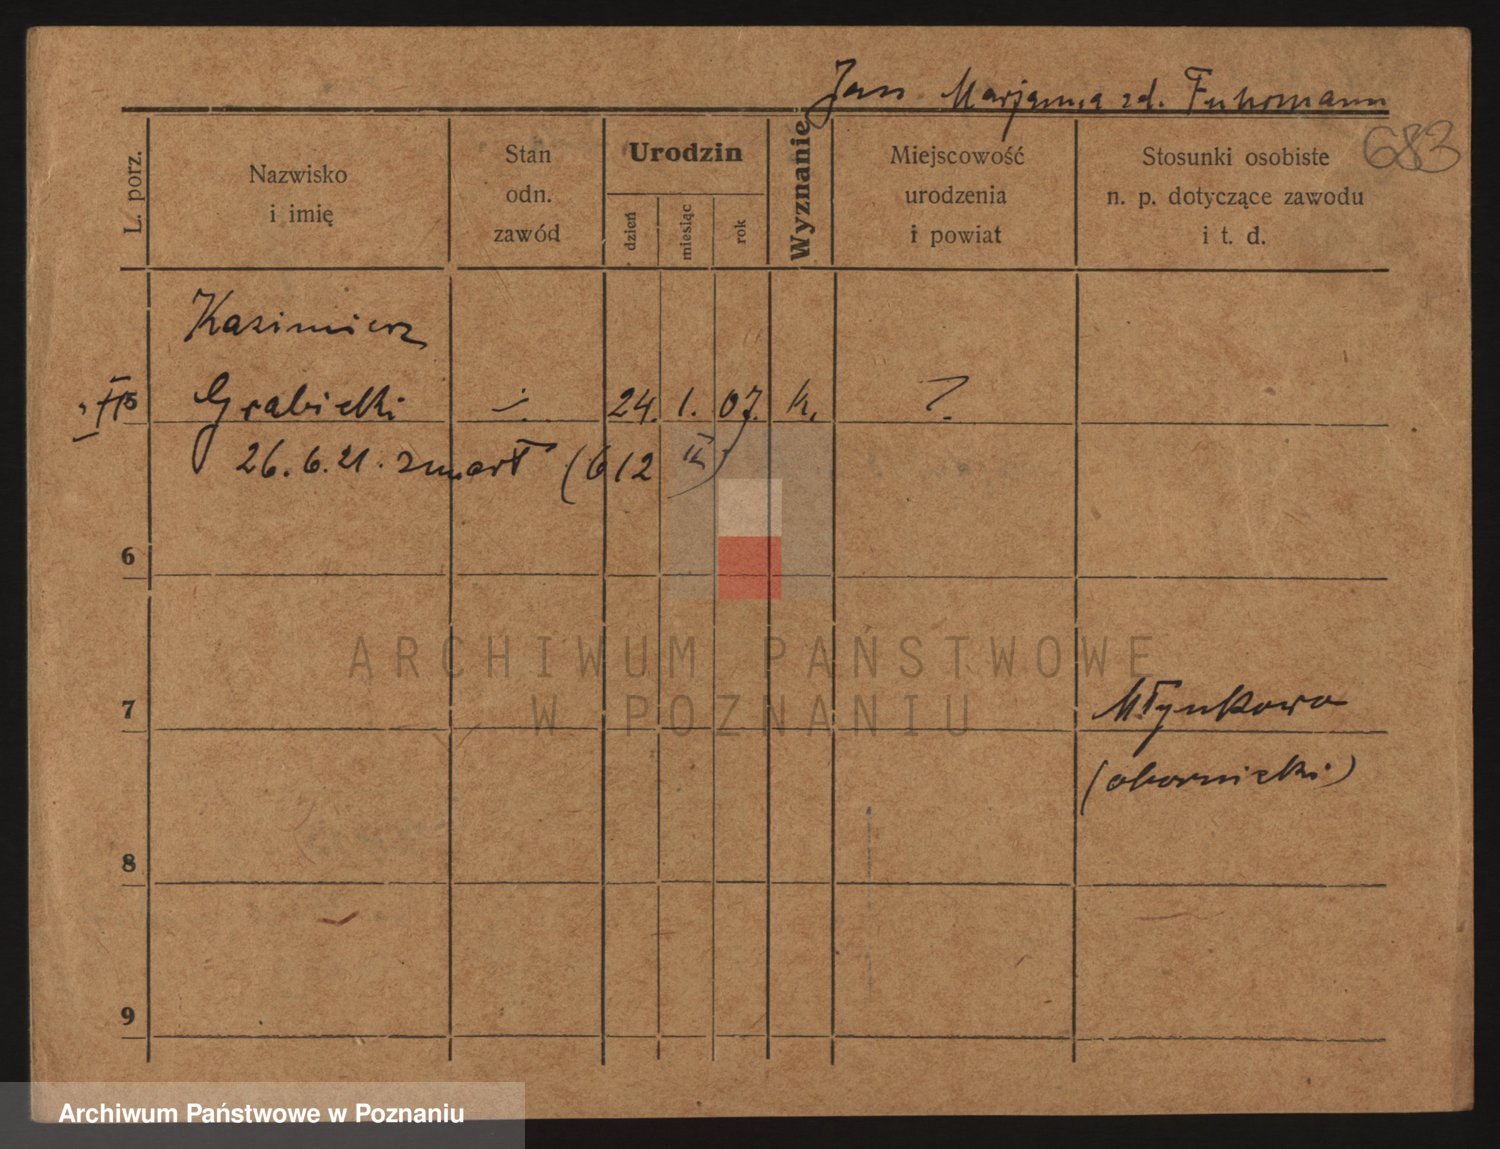 Jan Marjanna zd. Fuhrmann
683
L. porz.
Nazwisko
i imię
Stan
odn.
zawód
Urodzin
dzień
miesiąc
rok
Wyznanie
Miejscowość
urodzenia
i powiat
Stosunki osobiste
n. p. dotyczące zawodu
i t. d.
Kazimierz
5 Grabicki ÷ 24. 1. 07. k. ?
26. 6. 21. zmarł (612
6
ARCHIWUM PAŃSTWOWE
W POZNANIU
7 Młynkowo
(obornicki)
8
9
Archiwum Państwowe w Poznaniu